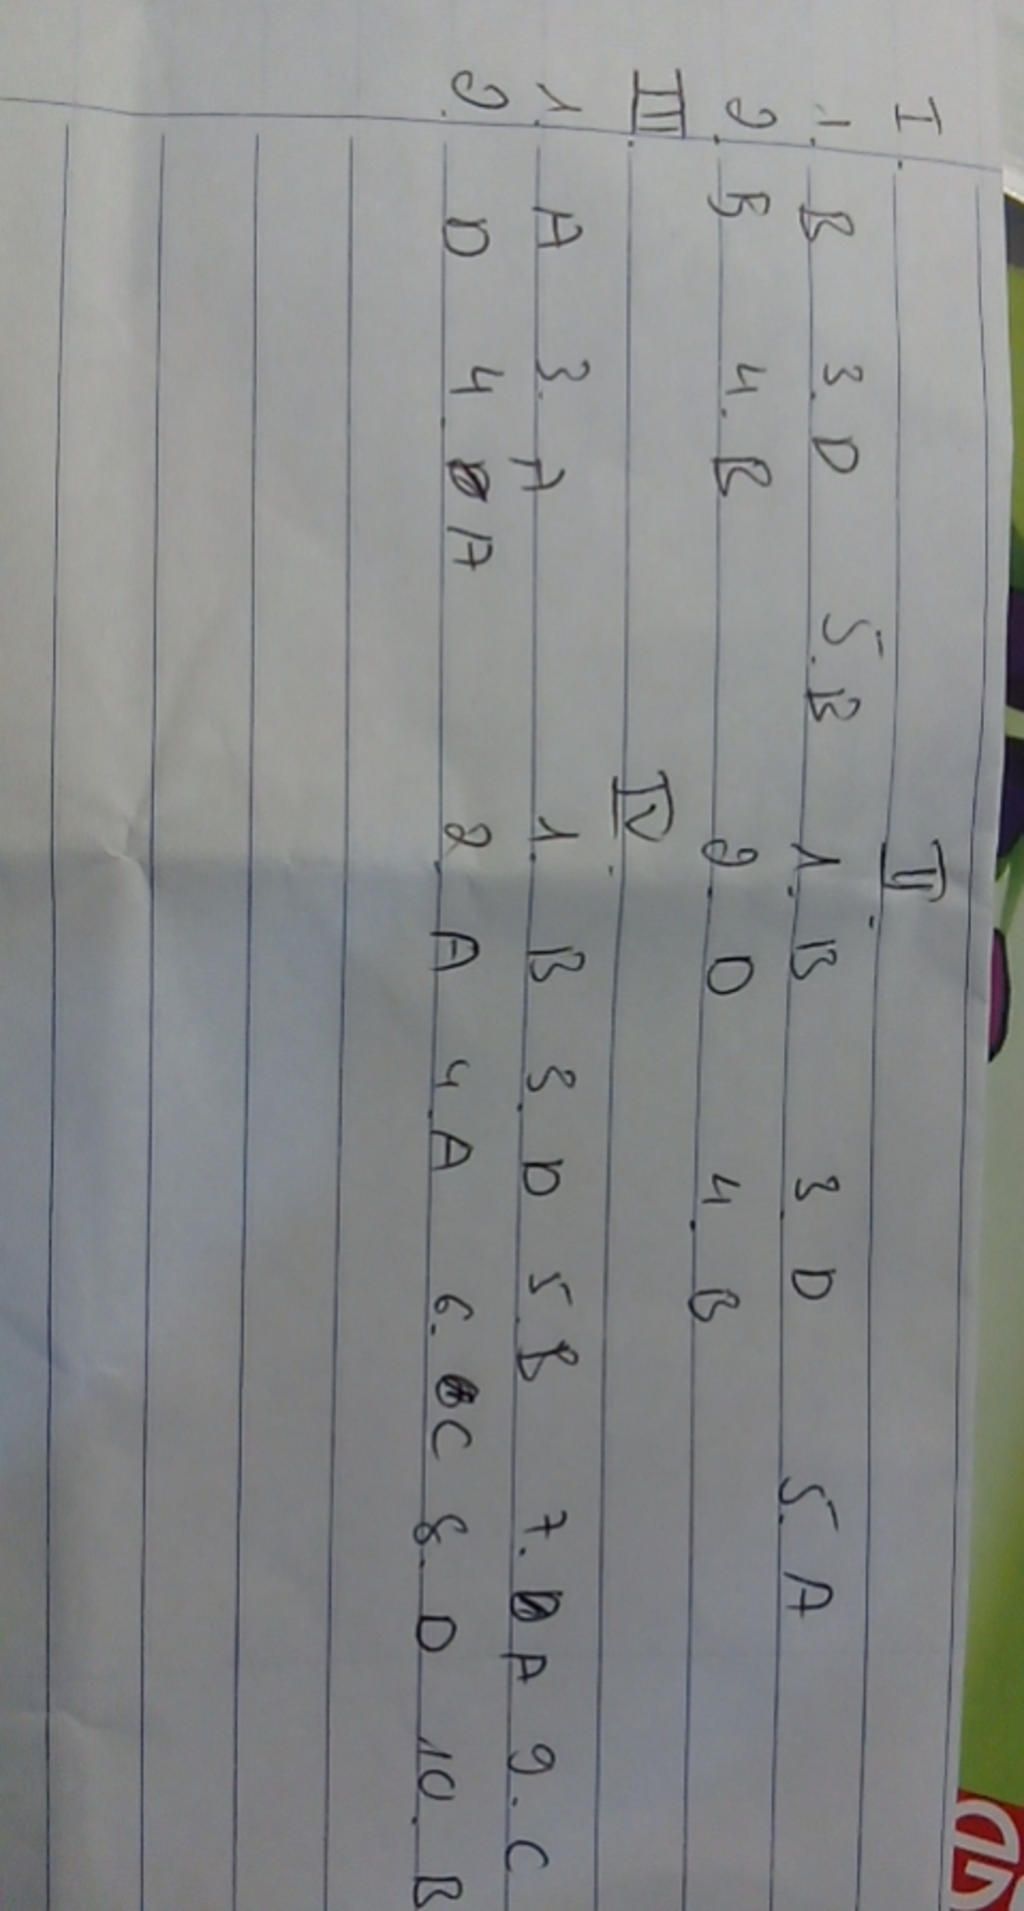 I. II.
1. B 3. D 5. B 1. B 3 D 5. A
2. B 4. B 2. D 4. B
III. IV.
1. A 3. A 1. B 3. D 5. B 7. A 9. C
2. D 4. A 2. A 4. A 6. C 8. D 10. B